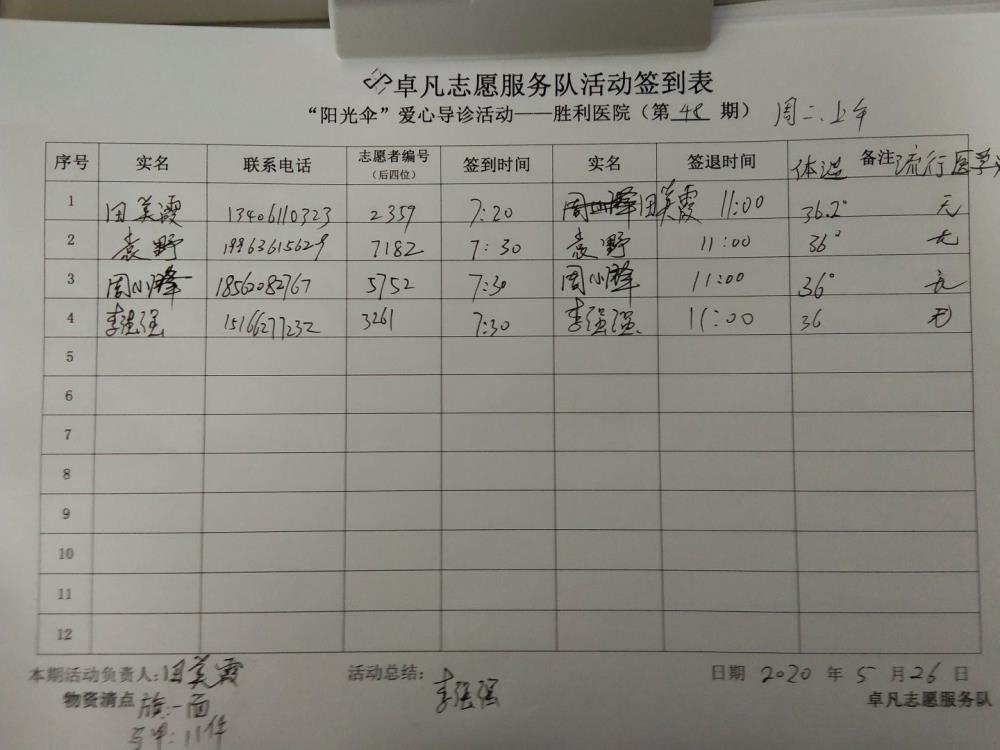 卓凡志愿服务队活动签到表
“阳光伞”爱心导诊活动——胜利医院（第 48 期） 周二.上午
序号 实名 联系电话 志愿者编号（后四位） 签到时间 实名 签退时间 体温 备注 流行医学
1 田美霞 13406110323 2359 7:20 田美霞 11:00 36.2° 无
2 袁野 19963615629 7182 7:30 袁野 11:00 36° 无
3 周小峰 18562082767 5752 7:30 周小峰 11:00 36° 无
4 李强强 15166277232 3261 7:30 李强强 11:00 36 无
5
6
7
8
9
10
11
12
本期活动负责人:田美霞 活动总结: 李强强 日期 2020 年 5 月 26 日
物资清点 旗:一面 卓凡志愿服务队
马甲:11件